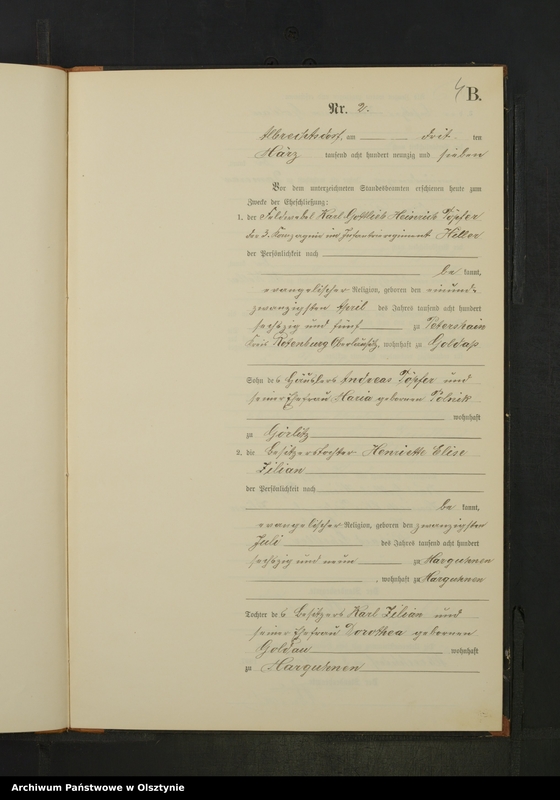 4 B.
Nr. 2.
Albrechtsdorf, am drit ten
März tausend acht hundert neunzig und sieben
Vor dem unterzeichneten Standesbeamten erschienen heute zum
Zwecke der Eheschließung:
1. der Feldwebel Karl Gottlieb Heinrich Töpfer
der 3. Kompagnie im Infanterieregiment Hiller
der Persönlichkeit nach
be kannt,
evangelischer Religion, geboren den einund-
zwanzigsten April des Jahres tausend acht hundert
sechszig und fünf zu Petershain
Kreis Rotenburg Oberlausitz, wohnhaft zu Goldap
Sohn des Häuslers Andreas Töpfer und
seiner Ehefrau Maria geborenen
wohnhaft
zu Görlitz
2. die Besitzerstochter Henriette Elise
Zilian
der Persönlichkeit nach
be kannt,
evangelischer Religion, geboren den zwanzigsten
Juli des Jahres tausend acht hundert
sechszig und neun zu Marguhnen
, wohnhaft zu Marguhnen
Tochter des Besitzers Karl Zilian und
seiner Ehefrau Dorothea geborenen
Goldau wohnhaft
zu Marguhnen
Archiwum Państwowe w Olsztynie